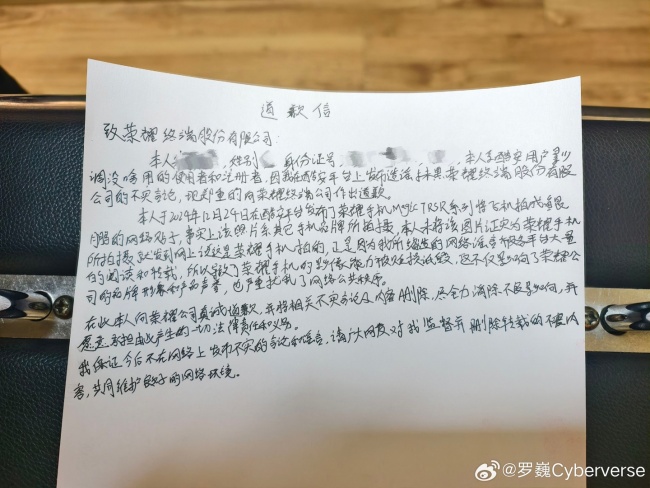 道歉信
致荣耀终端股份有限公司:
本人 ,性别 身份证号 , 本人系酷安用户
调没啥用的使用者和注册者,因我在酷安平台上发布违法抹黑荣耀终端股份有限
公司的不实言论,现郑重的向荣耀终端公司作出道歉。
本人于2024年12月24日在酷安平台发布了荣耀手机Magic 7RSR系列 飞机拍成
的网络贴子,事实上该照片系其它手机品牌所拍摄,本人未将该图片证实为荣耀手机
所拍摄,就发到网上说这是荣耀手机拍的,正是因为我所 的网络 被各平台大量
的阅读和转载,所以导致了荣耀手机的影像能力被贬损诋毁,这不仅影响了荣耀公
司的品牌形象和产品声誉,也严重扰乱了网络公共秩序。
在此本人向荣耀公司真诚道歉,并将相关不实言论及内容删除,尽全力消除不良影响,并
愿意承担由此产生的一切法律责任和义务。
我保证今后不在网络上发布不实的言论和谣言,请广大网友对我监督并删除转载的不
容,共同维护良好的网络环境。
@罗巍Cyberverse